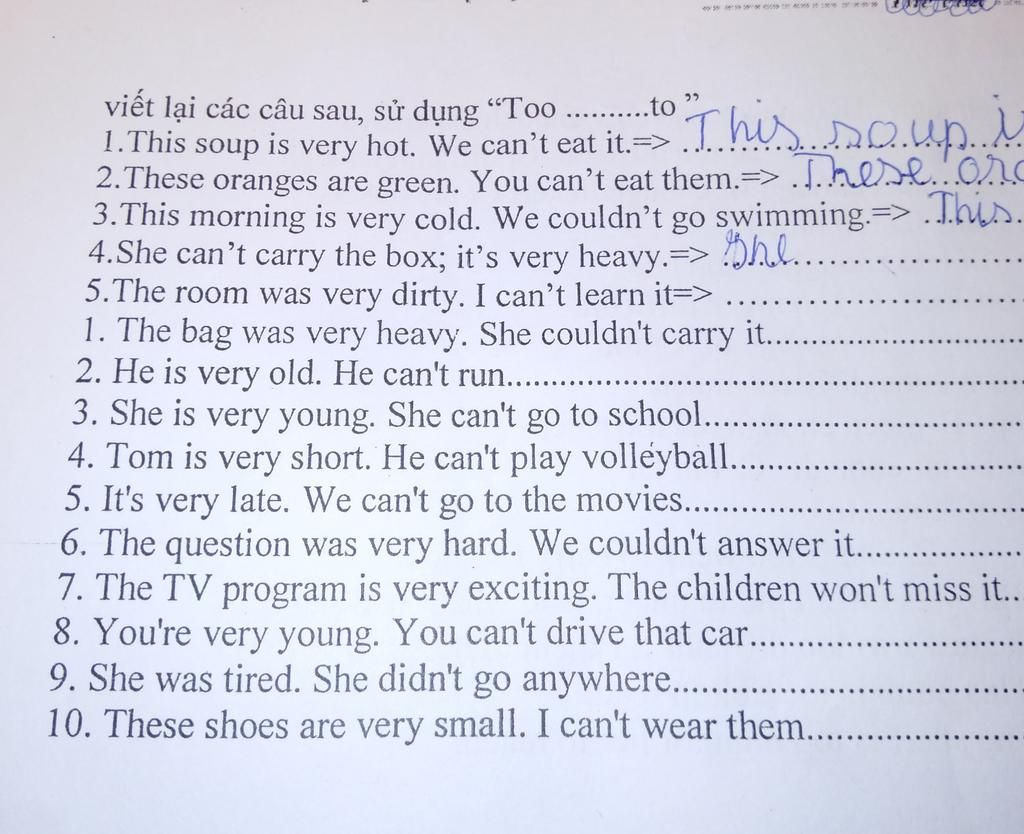 viết lại các câu sau, sử dụng “Too ..........to ”
1.This soup is very hot. We can’t eat it.=> This soup i
2.These oranges are green. You can’t eat them.=> These ora
3.This morning is very cold. We couldn’t go swimming.=> This
4.She can’t carry the box; it’s very heavy.=> She
5.The room was very dirty. I can’t learn it=> ..............................
1. The bag was very heavy. She couldn't carry it..............................
2. He is very old. He can't run..............................
3. She is very young. She can't go to school..............................
4. Tom is very short. He can't play volleyball..............................
5. It's very late. We can't go to the movies..............................
6. The question was very hard. We couldn't answer it....................
7. The TV program is very exciting. The children won't miss it..
8. You're very young. You can't drive that car..............................
9. She was tired. She didn't go anywhere..............................
10. These shoes are very small. I can't wear them..........................